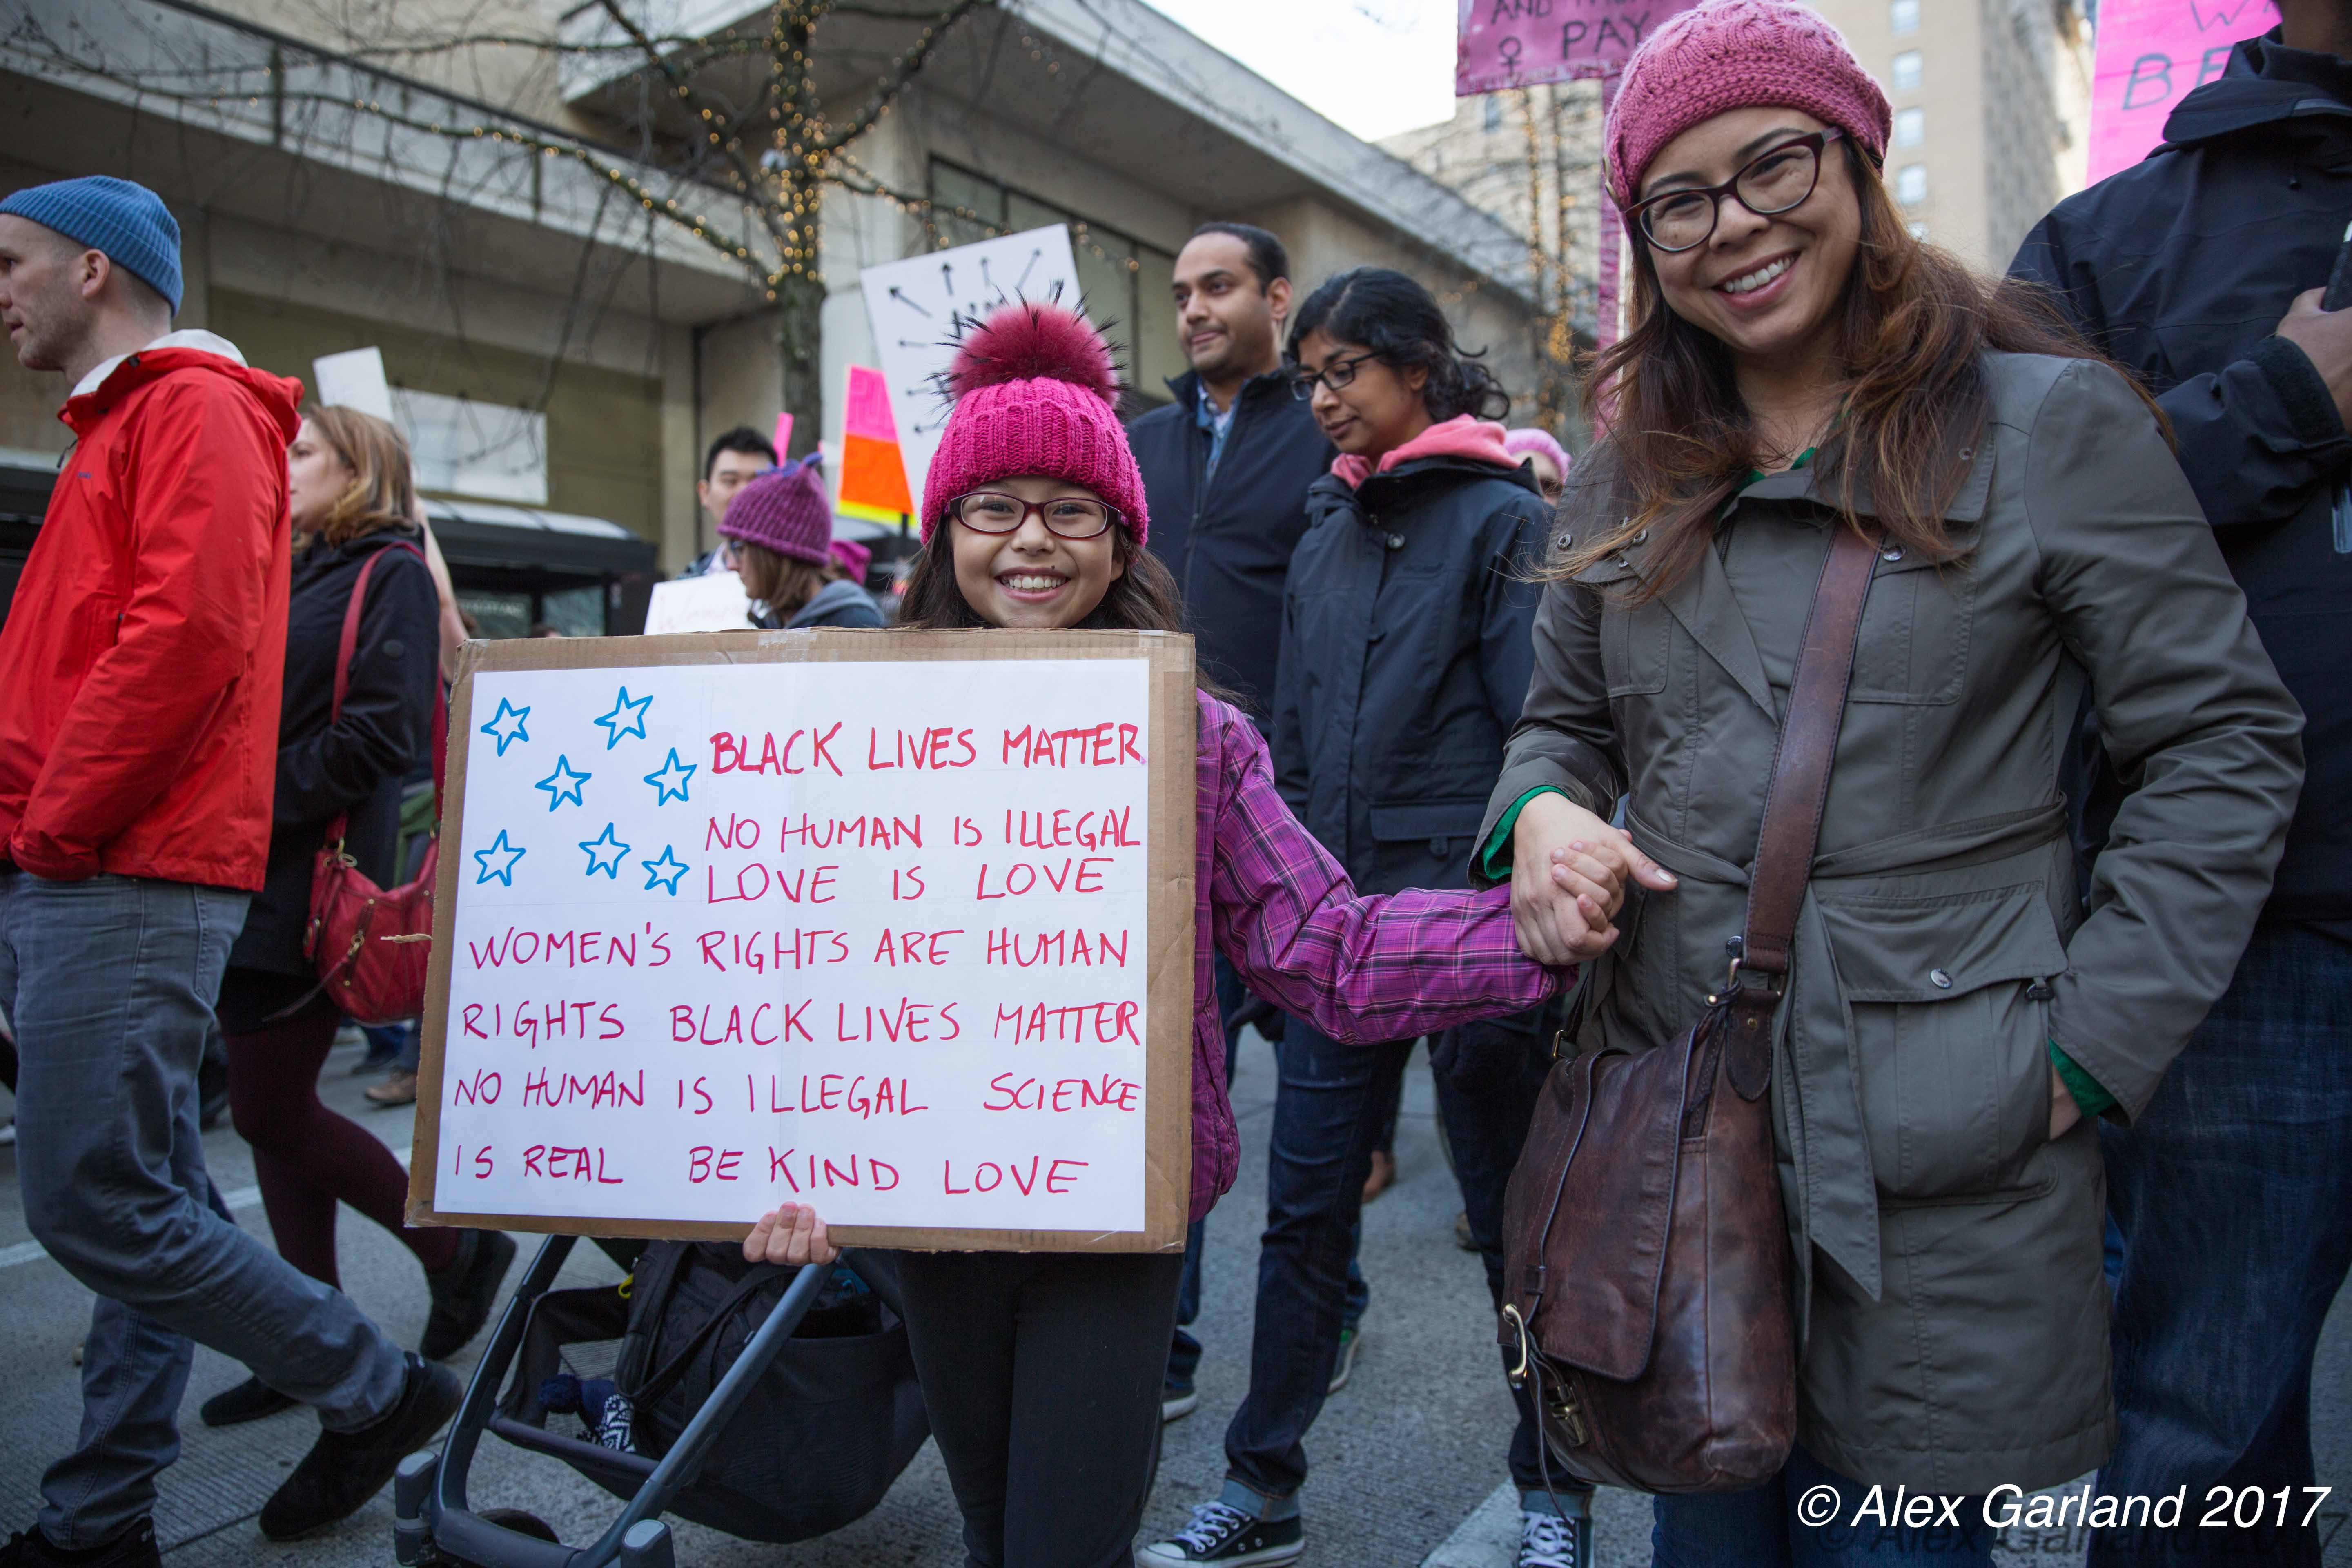 AND
♀ PAY
BLACK LIVES MATTER
NO HUMAN IS ILLEGAL
LOVE IS LOVE
WOMEN'S RIGHTS ARE HUMAN
RIGHTS BLACK LIVES MATTER
NO HUMAN IS ILLEGAL SCIENCE
IS REAL BE KIND LOVE
© Alex Garland 2017